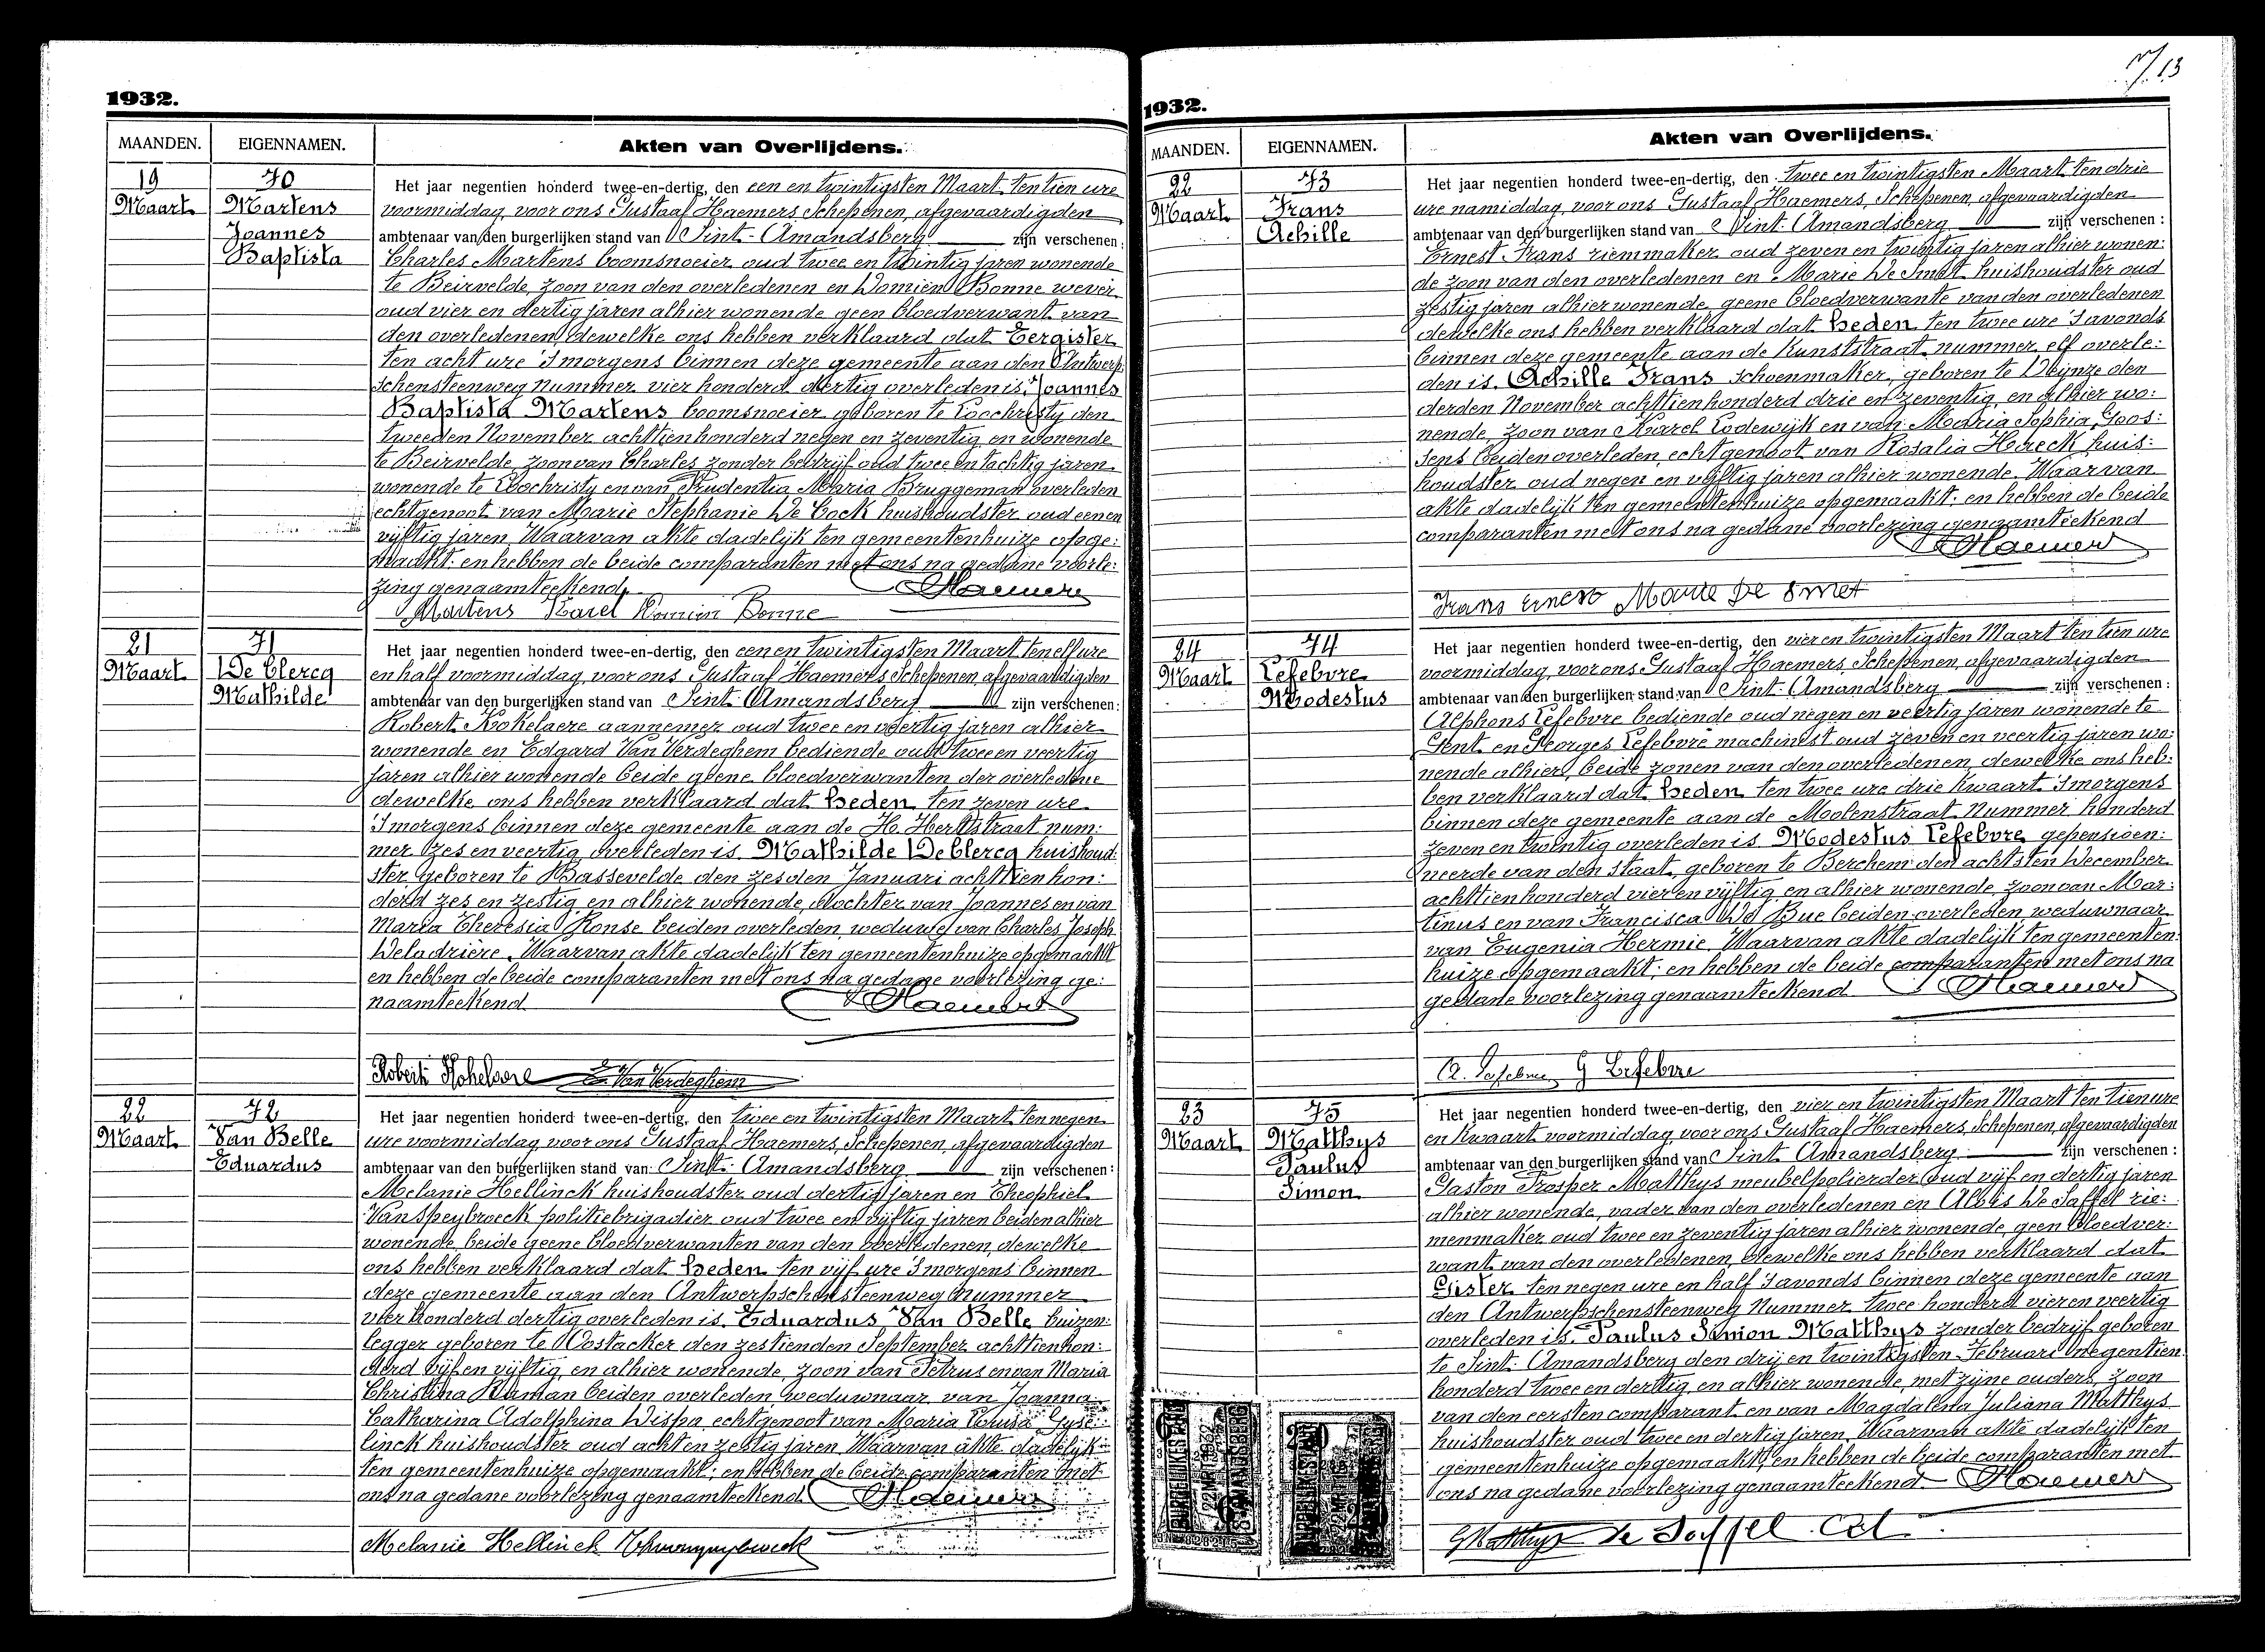 1932.
MAANDEN. EIGENNAMEN. Akten van Overlijdens.
19 Maart
70 Martens Joannes Baptista
Het jaar negentien honderd twee-en-dertig, den een en twintigsten Maart ten tien ure
voormiddag, voor ons Gustaaf Haemers, Schepenen, afgevaardigden
ambtenaar van den burgerlijken stand van Sint-Amandsberg zijn verschenen:
Charles Martens boomsnoeier oud twee en twintig jaren wonende
te Beirvelde, zoon van den overledenen en Domien Bonne wever
oud vier en dertig jaren alhier wonende geen bloedverwant van
den overledenen, dewelke ons hebben verklaard dat Eergister
ten acht ure 's morgens binnen deze gemeente aan den Antwerp-
schensteenweg nummer vier honderd dertig overleden is, Joannes
Baptista Martens boomsnoeier geboren te Loochristy den
tweeden November achttien honderd negen en zeventig en wonende
te Beirvelde, zoon van Charles zonder bedrijf oud twee en tachtig jaren
wonende te Loochristy en van Prudentia Maria Bruggeman overleden
echtgenoot van Marie Stephanie De Cock huishoudster oud een en
vijftig jaren. Waarvan akte dadelijk ten gemeentenhuize opge:
maakt: en hebben de beide comparanten met ons na gedane voorle:
zing genaamteekend. Haemers
Martens Karel Domien Bonne
21 Maart
71 De Clercq Mathilde
Het jaar negentien honderd twee-en-dertig, den een en twintigsten Maart ten elf ure
en half voormiddag, voor ons Gustaaf Haemers Schepenen, afgevaardigden
ambtenaar van den burgerlijken stand van Sint-Amandsberg zijn verschenen:
Robert Kokelaere aannemer oud twee en veertig jaren alhier
wonende en Edgard Van Verdeghem bediende oud twee en veertig
jaren alhier wonende beide geene bloedverwanten der overledene
dewelke ons hebben verklaard dat heden ten zeven ure
's morgens binnen deze gemeente aan de H. Hertstraat num:
mer zes en veertig overleden is Mathilde De Clercq huishoud:
ster geboren te Bassevelde den zesden Januari achttien hon:
derd zes en zestig en alhier wonende, dochter van Joannes en van
Maria Theresia Ronse beiden overleden, weduwe van Charles Joseph
Deladrière. Waarvan akte dadelijk ten gemeentenhuize opgemaakt
en hebben de beide comparanten met ons na gedane voorlezing ge:
naamteekend. Haemers
Robert Kokelaere E. Van Verdeghem
22 Maart
72 Van Belle Eduardus
Het jaar negentien honderd twee-en-dertig, den twee en twintigsten Maart ten negen
ure voormiddag voor ons Gustaaf Haemers, Schepenen, afgevaardigden
ambtenaar van den burgerlijken stand van Sint-Amandsberg zijn verschenen:
Melanie Hellinck huishoudster oud dertig jaren en Theophiel
Van Speybroeck politiebrigadier oud twee en vijftig jaren beiden alhier
wonende, beide geene bloedverwanten van den overledenen, dewelke
ons hebben verklaard dat heden ten vijf ure 's morgens binnen
deze gemeente aan den Antwerpschensteenweg nummer
vier honderd dertig overleden is Eduardus Van Belle buizen:
legger geboren te Oostacker den zestienden September achttien hon:
derd vijf en vijftig en alhier wonende, zoon van Petrus en van Maria
Christina Raman beiden overleden, weduwnaar van Joanna
Catharina Adolphina Dispa, echtgenoot van Maria Louisa Gyse:
linck huishoudster oud acht en zestig jaren. Waarvan akte dadelijk
ten gemeentenhuize opgemaakt; en hebben de beide comparanten met
ons na gedane voorlezing genaamteekend. Haemers
Melanie Hellinck
13
1932.
MAANDEN. EIGENNAMEN. Akten van Overlijdens.
22 Maart
73 Frans Achille
Het jaar negentien honderd twee-en-dertig, den twee en twintigsten Maart ten drie
ure namiddag, voor ons Gustaaf Haemers, Schepenen, afgevaardigden
ambtenaar van den burgerlijken stand van Sint-Amandsberg zijn verschenen:
Ernest Frans riemmaker oud zeven en twintig jaren alhier wonen:
de zoon van den overledenen en Marie De Smet huishoudster oud
zestig jaren alhier wonende, geene bloedverwante van den overledenen
dewelke ons hebben verklaard dat heden ten twee ure 's avonds
binnen deze gemeente aan de Kunststraat nummer elf overle:
den is Achille Frans schoenmaker, geboren te Deijnze den
derden November achttien honderd drie en zeventig, en alhier wo:
nende, zoon van Karel Lodewijk en van Maria Sophia Goos:
sens beiden overleden, echtgenoot van Rosalia Haeck huis:
houdster oud negen en vijftig jaren alhier wonende. Waarvan
akte dadelijk ten gemeentenhuize opgemaakt: en hebben de beide
comparanten met ons na gedane voorlezing genaamteekend
Haemers
Frans Ernest Marie De Smet
24 Maart
74 Lefebvre Modestus
Het jaar negentien honderd twee-en-dertig, den vier en twintigsten Maart ten tien ure
voormiddag, voor ons Gustaaf Haemers, Schepenen, afgevaardigden
ambtenaar van den burgerlijken stand van Sint-Amandsberg zijn verschenen:
Alphons Lefebvre bediende oud negen en veertig jaren wonende te
Gent en Georges Lefebvre machinest oud zeven en veertig jaren wo:
nende alhier, beide zonen van den overledenen, dewelke ons heb:
ben verklaard dat heden ten twee ure drie kwaart 's morgens
binnen deze gemeente aan de Molenstraat nummer honderd
zeven en twintig overleden is Modestus Lefebvre gepensioen:
neerde van den staat, geboren te Berchem den achtsten December
achttien honderd vier en vijftig en alhier wonende, zoon van Mar:
tinus en van Francisca De Bue beiden overleden, weduwnaar
van Eugenia Hermie. Waarvan akte dadelijk ten gemeenten:
huize opgemaakt; en hebben de beide comparanten met ons na
gedane voorlezing genaamteekend. Haemers
A. Lefebvre G Lefebvre
23 Maart
75 Matthys Paulus Simon
Het jaar negentien honderd twee-en-dertig, den vier en twintigsten Maart ten tien ure
en kwaart voormiddag, voor ons Gustaaf Haemers, Schepenen, afgevaardigden
ambtenaar van den burgerlijken stand van Sint-Amandsberg zijn verschenen:
Gaston Prosper Matthys meubelpolierder oud vijf en dertig jaren
alhier wonende, vader van den overledenen en Aloïs De Saffel rie:
menmaker oud twee en zeventig jaren alhier wonende, geen bloedver:
want van den overledenen, dewelke ons hebben verklaard dat
Gister ten negen ure en half 's avonds binnen deze gemeente aan
den Antwerpschensteenweg nummer twee honderd vier en veertig
overleden is, Paulus Simon Matthys zonder bedrijf geboren
te Sint-Amandsberg den drij en twintigsten Februari negentien
honderd twee en dertig en alhier wonende met zijne ouders, zoon
van den eersten comparant en van Magdalena Juliana Matthys
huishoudster oud twee en dertig jaren. Waarvan akte dadelijk ten
gemeentenhuize opgemaakt; en hebben de beide comparanten met
ons na gedane voorlezing genaamteekend Haemers
G Matthys De Saffel